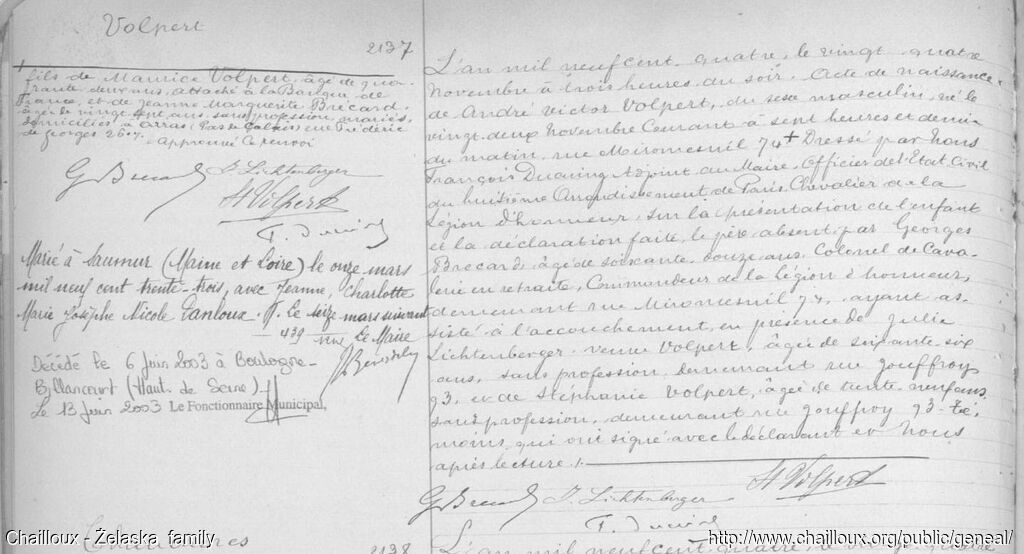 Volpert
2137
fils de Maurice Volpert, âgé de qua-
rante deux ans, attaché à la Banque de
France, et de Jeanne Marguerite Brécard,
âgée de vingt sept ans, sans profession, mariés,
domiciliés à Arras (Pas de Calais) rue Frédéric
de Georges 26.
Approuvé ce renvoi
G Brecard J. Lichtenberger
St Volpert
Marié à Saumur (Maine et Loire) le onze mars
mil neuf cent trente-trois, avec Jeanne, Charlotte
Marie Josèphe Nicole Lanloux. Le seize mars suivant
439 Le Maire
Décédé le 6 Juin 2003 à Boulogne-
Billancourt (Haut. de Seine)
Le 13 Juin 2003 Le Fonctionnaire Municipal,
L'an mil neuf cent quatre, le vingt quatre
Novembre à trois heures du soir. Acte de naissance
de André Victor Volpert, du sexe masculin, né le
vingt deux Novembre courant à sept heures et demie
du matin, rue Miromesnil 74 + Dressé par Nous
François Adjoint au Maire, Officier de l'Etat Civil
du huitième Arrondissement de Paris Chevalier de la
Légion d'honneur, sur la présentation de l'enfant
et la déclaration faite, le père absent par Georges
Brecard, âgé de soixante douze ans, Colonel de Cava-
lerie en retraite, Commandeur de la Légion d'honneur,
demeurant rue Miromesnil 74, ayant as-
sisté à l'accouchement, en présence de Julie
Lichtenberger veuve Volpert, âgée de soixante six
ans, sans profession, demeurant rue Jouffroy
93, et de Stéphanie Volpert, âgée de trente neuf ans
sans profession, demeurant rue Jouffroy 93 té-
moins, qui ont signé avec le déclarant et Nous
après lecture.
G Brecard J. Lichtenberger St Volpert
2138
L'an mil neuf cent quatre, le
Chailloux - Želaska family
http://www.chailloux.org/public/geneal/